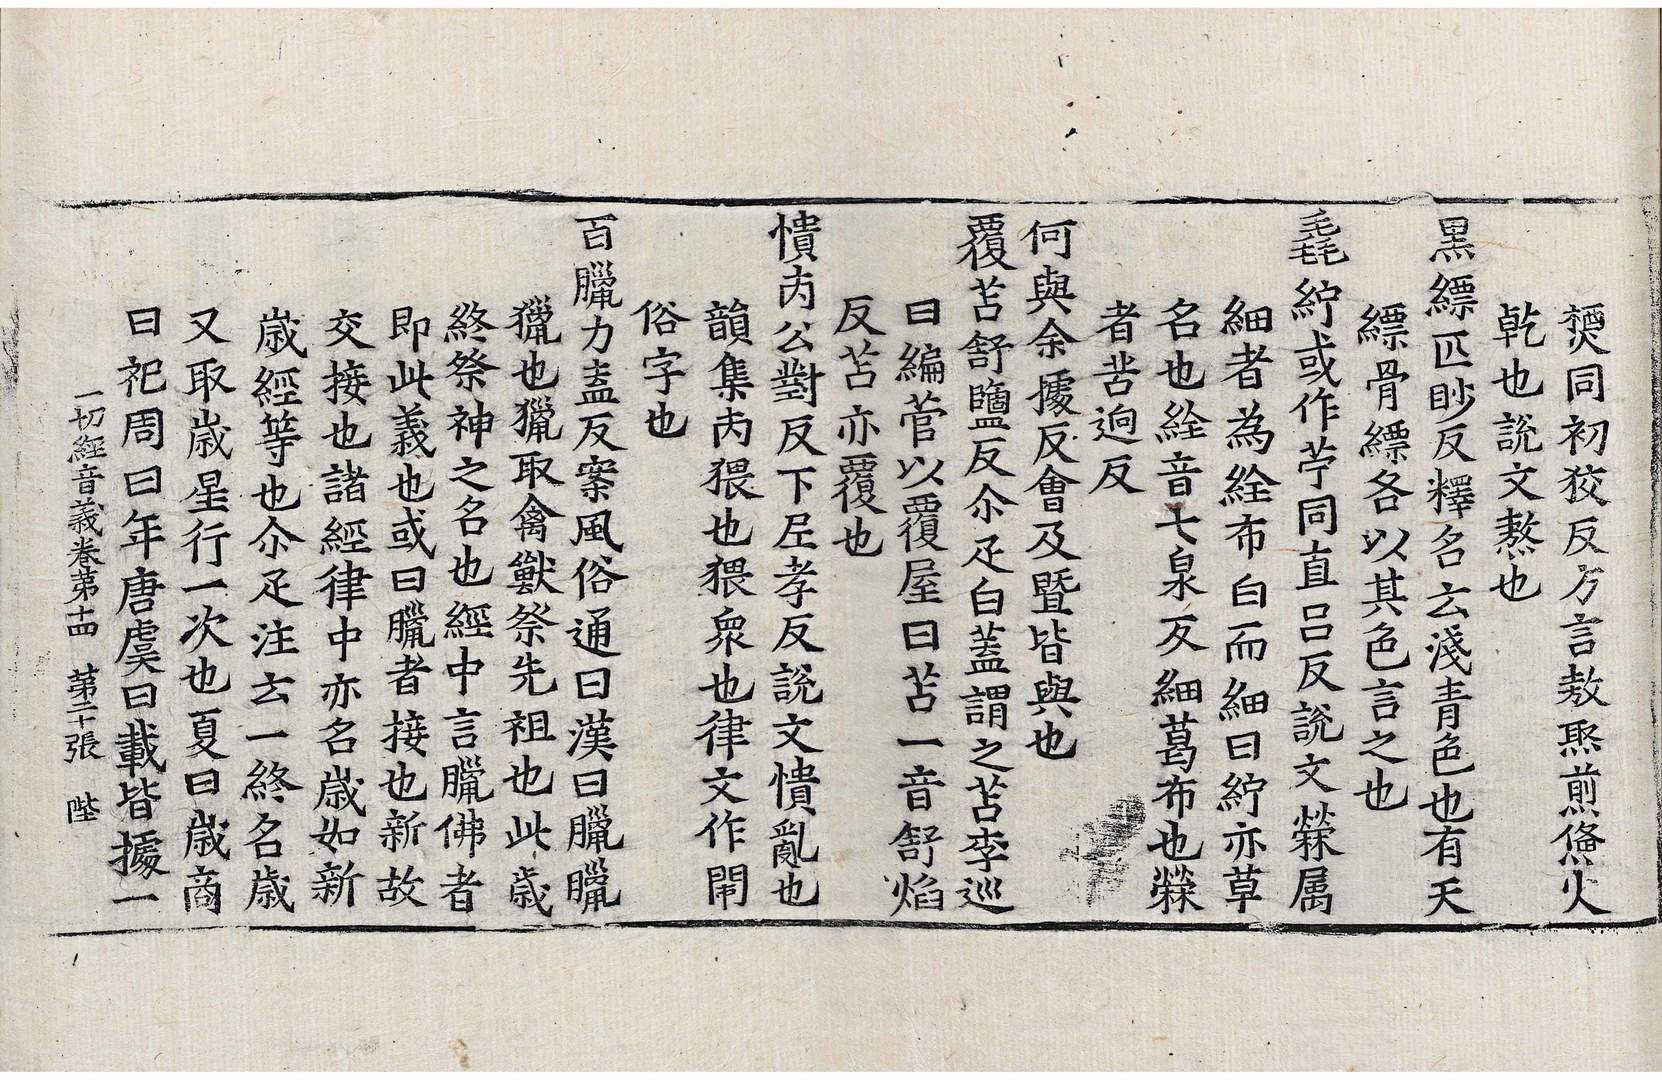 㷅同初狡反方言熬聚煎㷶火
乾也說文熬也
黑縹匹眇反釋名云淺青色也有天
縹骨縹各以其色言之也
毳紵或作苧同直呂反說文䔛属
細者為絟布白而細曰紵亦草
名也絟音七泉反細葛布也䔛
者苦迥反
何與余據反會及曁皆與也
覆苫舒鹽反尒疋白蓋謂之苫李巡
曰編菅以覆屋曰苫一音舒焰
反苫亦覆也
憒丙公對反下𡰱孝反說文憒亂也
韻集丙猥也猥衆也律文作閙
俗字也
百臘力盍反案風俗通曰漢曰臘臘
獵也獵取禽獸祭先祖也此歳
終祭神之名也經中言臘佛者
即此義也或曰臘者接也新故
交接也諸經律中亦名歳如新
歳經等也尒疋注云一終名歳
又取歳星行一次也夏曰歳商
曰祀周曰年唐虞曰載皆據一
一切經音義卷第十四 第二十張 陛